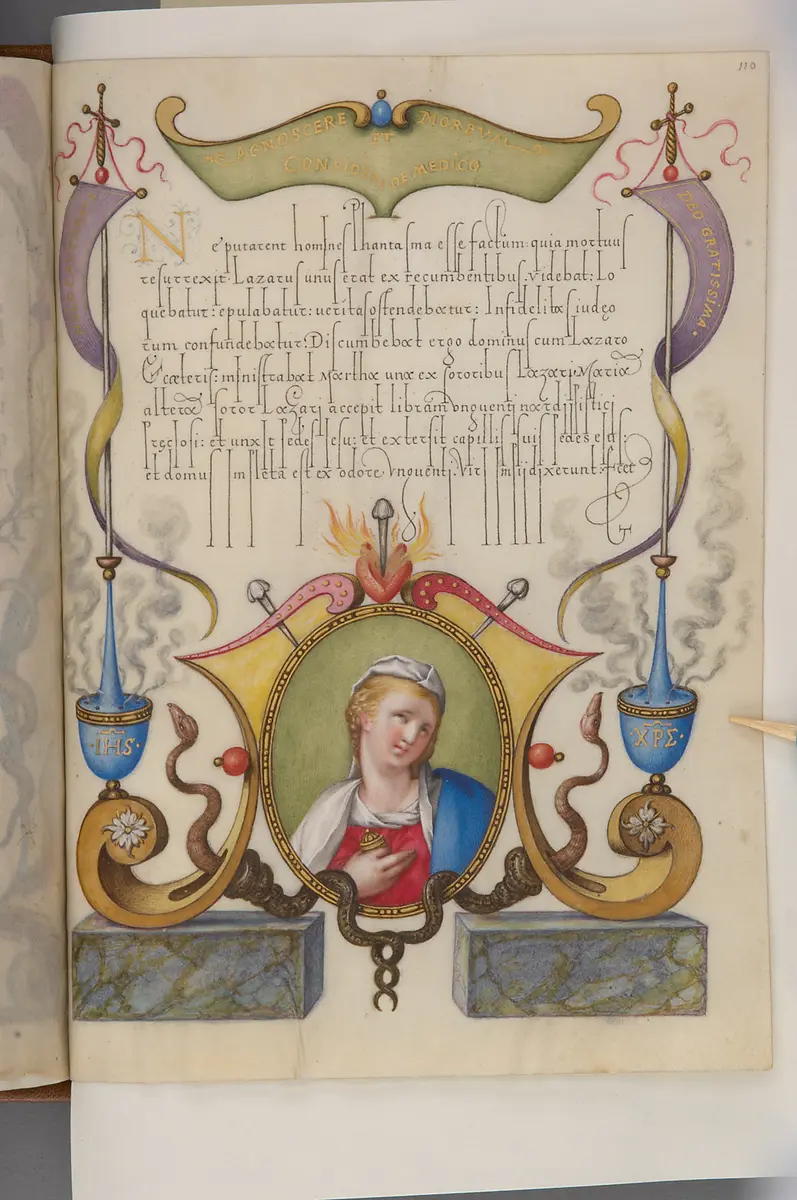 110
AGNOSCERE ET MORBVM
CONFIDIT DE MEDICO
DEO GRATISSIMA.
Ne putarent homines Phantasma esse factum: quia mortuus
resurrexit. Lazarus unus erat ex recumbentibus. Videbat: Lo
quebatur: epulabatur: ueritas ostendebatur: Infidelitas iudęo
rum confundebatur. Discumbebat ergo dominus cum Lazaro
& cæteris: ministrabat Martha una ex sororibus Lazari. Maria
altera soror Lazari accepit libram vnguenti nardi pistici
preciosi: et unxit pedes Iesu: et extersit capillis suis pedes eius:
et domus impleta est ex odore vnguenti. Vir impij dixerunt: fcet
IHS
XPΣ